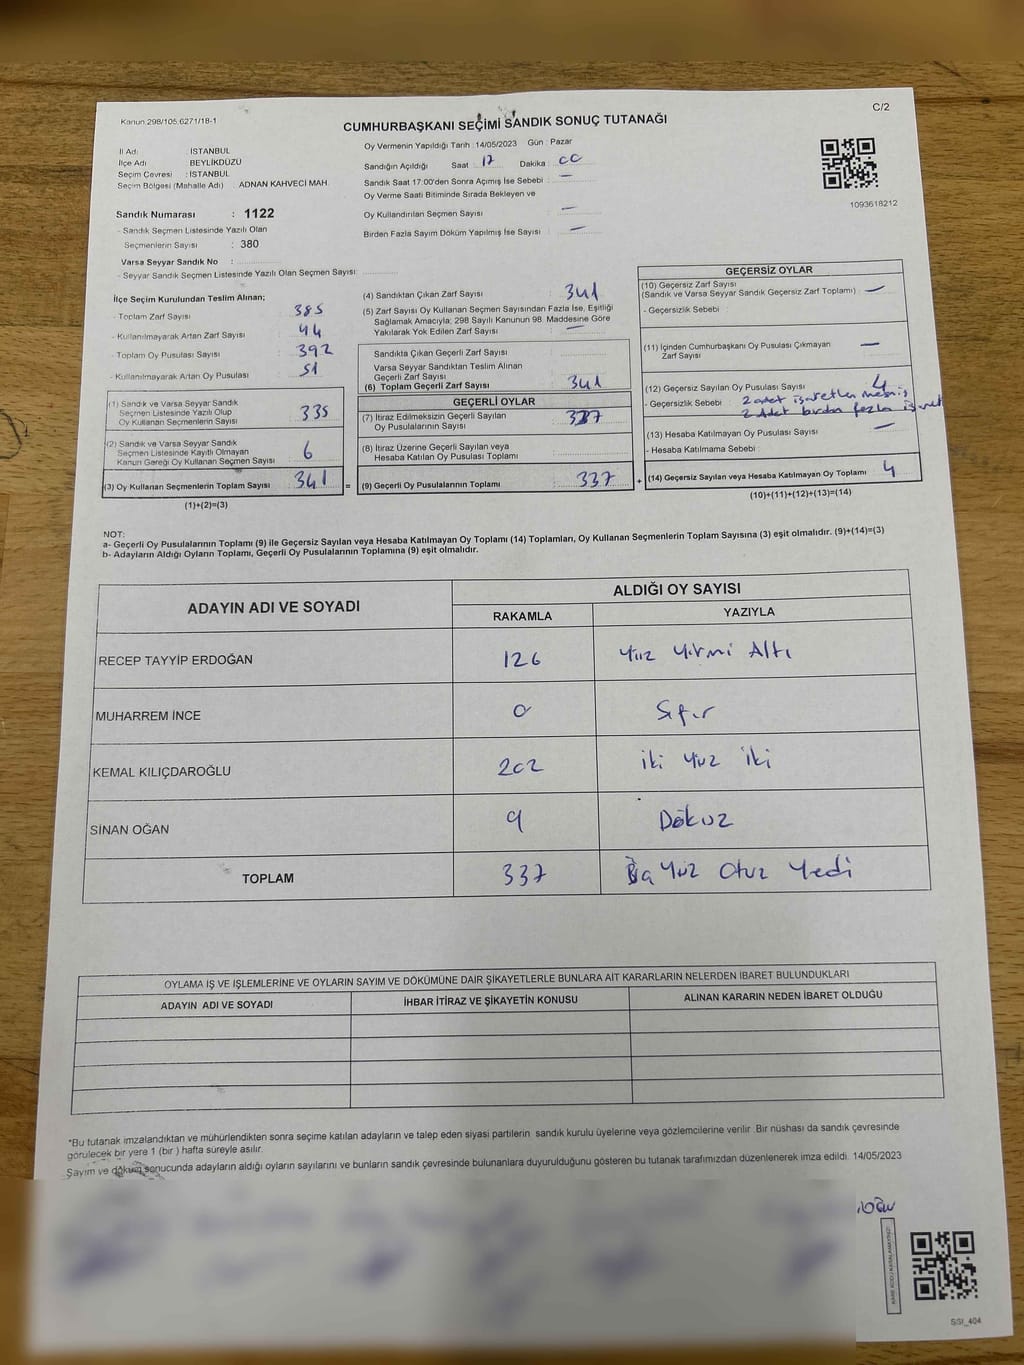 Kanun 298/105.6271/18-1
C/2
CUMHURBAŞKANI SEÇİMİ SANDIK SONUÇ TUTANAĞI
İl Adı : İSTANBUL
İlçe Adı : BEYLİKDÜZÜ
Seçim Çevresi : İSTANBUL
Seçim Bölgesi (Mahalle Adı) : ADNAN KAHVECİ MAH.
Sandık Numarası : 1122
- Sandık Seçmen Listesinde Yazılı Olan
Seçmenlerin Sayısı : 380
Varsa Seyyar Sandık No :
- Seyyar Sandık Seçmen Listesinde Yazılı Olan Seçmen Sayısı :
Oy Vermenin Yapıldığı Tarih : 14/05/2023 Gün : Pazar
Sandığın Açıldığı Saat : 17 Dakika : 00
Sandık Saat 17:00'den Sonra Açımış İse Sebebi : —
Oy Verme Saati Bitiminde Sırada Bekleyen ve
Oy Kullandırılan Seçmen Sayısı : —
Birden Fazla Sayım Döküm Yapılmış İse Sayısı : —
1093618212
İlçe Seçim Kurulundan Teslim Alınan;
- Toplam Zarf Sayısı : 385
- Kullanılmayarak Artan Zarf Sayısı : 44
- Toplam Oy Pusulası Sayısı : 392
- Kullanılmayarak Artan Oy Pusulası : 51
(1) Sandık ve Varsa Seyyar Sandık
Seçmen Listesinde Yazılı Olup
Oy Kullanan Seçmen Sayısı 335
(2) Sandık ve Varsa Seyyar Sandık
Seçmen Listesinde Kayıtlı Olmayan
Kanun Gereği Oy Kullanan Seçmen Sayısı 6
(3) Oy Kullanan Seçmenlerin Toplam Sayısı 341 =
(1)+(2)=(3)
(4) Sandıktan Çıkan Zarf Sayısı : 341
(5) Zarf Sayısı Oy Kullanan Seçmen Sayısından Fazla İse, Eşitliği
Sağlamak Amacıyla; 298 Sayılı Kanunun 98. Maddesine Göre
Yakılarak Yok Edilen Zarf Sayısı : —
Sandıkta Çıkan Geçerli Zarf Sayısı :
Varsa Seyyar Sandıktan Teslim Alınan
Geçerli Zarf Sayısı :
(6) Toplam Geçerli Zarf Sayısı : 341
GEÇERLİ OYLAR
(7) İtiraz Edilmeksizin Geçerli Sayılan
Oy Pusulalarının Sayısı : 337
(8) İtiraz Üzerine Geçerli Sayılan veya
Hesaba Katılan Oy Pusulası Toplamı :
(9) Geçerli Oy Pusulalarının Toplamı : 337 +
GEÇERSİZ OYLAR
(10) Geçersiz Zarf Sayısı
(Sandık ve Varsa Seyyar Sandık Geçersiz Zarf Toplamı) : —
- Geçersizlik Sebebi :
(11) İçinden Cumhurbaşkanı Oy Pusulası Çıkmayan
Zarf Sayısı : —
(12) Geçersiz Sayılan Oy Pusulası Sayısı : 4
- Geçersizlik Sebebi : 2 adet işaretlenmemiş
2 Adet birden fazla işaret
(13) Hesaba Katılmayan Oy Pusulası Sayısı : —
- Hesaba Katılmama Sebebi :
(14) Geçersiz Sayılan veya Hesaba Katılmayan Oy Toplamı : 4
(10)+(11)+(12)+(13)=(14)
NOT:
a- Geçerli Oy Pusulalarının Toplamı (9) ile Geçersiz Sayılan veya Hesaba Katılmayan Oy Toplamı (14) Toplamları, Oy Kullanan Seçmenlerin Toplam Sayısına (3) eşit olmalıdır. (9)+(14)=(3)
b- Adayların Aldığı Oyların Toplamı, Geçerli Oy Pusulalarının Toplamına (9) eşit olmalıdır.
ADAYIN ADI VE SOYADI ALDIĞI OY SAYISI
RAKAMLA YAZIYLA
RECEP TAYYİP ERDOĞAN 126 Yüz Yirmi Altı
MUHARREM İNCE 0 Sıfır
KEMAL KILIÇDAROĞLU 202 iki Yüz iki
SİNAN OĞAN 9 Dokuz
TOPLAM 337 Yüz Otuz Yedi
OYLAMA İŞ VE İŞLEMLERİNE VE OYLARIN SAYIM VE DÖKÜMÜNE DAİR ŞİKAYETLERLE BUNLARA AİT KARARLARIN NELERDEN İBARET BULUNDUKLARI
ADAYIN ADI VE SOYADI İHBAR İTİRAZ VE ŞİKAYETİN KONUSU ALINAN KARARIN NEDEN İBARET OLDUĞU
*Bu tutanak imzalandıktan ve mühürlendikten sonra seçime katılan adayların ve talep eden siyasi partilerin sandık kurulu üyelerine veya gözlemcilerine verilir. Bir nüshası da sandık çevresinde
görülecek bir yere 1 (bir) hafta süreyle asılır.
Sayım ve döküm sonucunda adayların aldığı oyların sayılarını ve bunların sandık çevresinde bulunanlara duyurulduğunu gösteren bu tutanak tarafımızdan düzenlenerek imza edildi. 14/05/2023
SSI_404